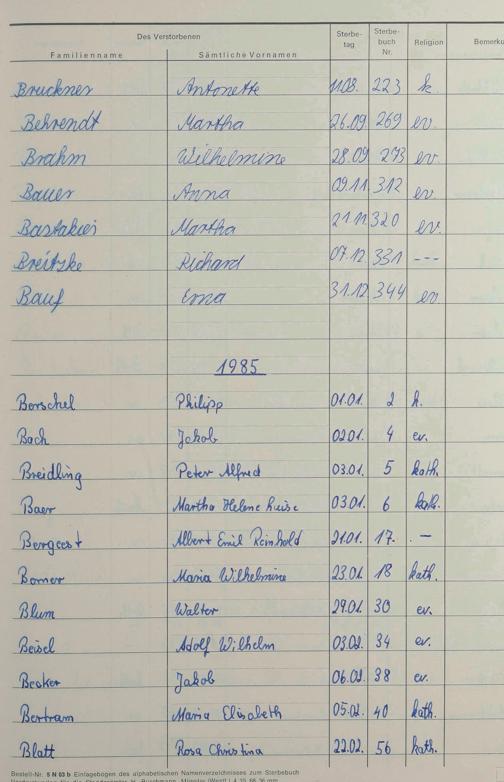 Des Verstorbenen Sterbe-tag Sterbe-buch Nr. Religion Bemerku
Familienname Sämtliche Vornamen
Bruckner Antonette 11.08. 223 k
Behrendt Martha 26.09 269 ev.
Brahm Wilhelmine 28.09 273 ev.
Bauer Anna 09.11. 312 ev.
Martha 21.11. 320 ev.
Breitzke Richard 07.12. 331 ---
Bauf Erna 31.12. 344 ev
1985
Borschel Philipp 01.01. 2 k.
Bach Jakob 02.01. 4 ev.
Breidling Peter Alfred 03.01. 5 kath.
Baer Martha Helene Luise 03.01. 6 kath.
Bergeest Albert Emil Reinhold 21.01. 17. . —
Bomer Maria Wilhelmine 23.01. 18 kath.
Blum Walter 29.01. 30 ev.
Beisel Adolf Wilhelm 03.02. 34 ev.
Becker Jakob 06.02. 38 ev.
Bertram Maria Elisabeth 05.02. 40 kath.
Blatt Rosa Christina 22.02. 56 kath.
Bestell-Nr. 5 N 63 b Einlagebogen des alphabetischen Namenverzeichnisses zum Sterbebuch